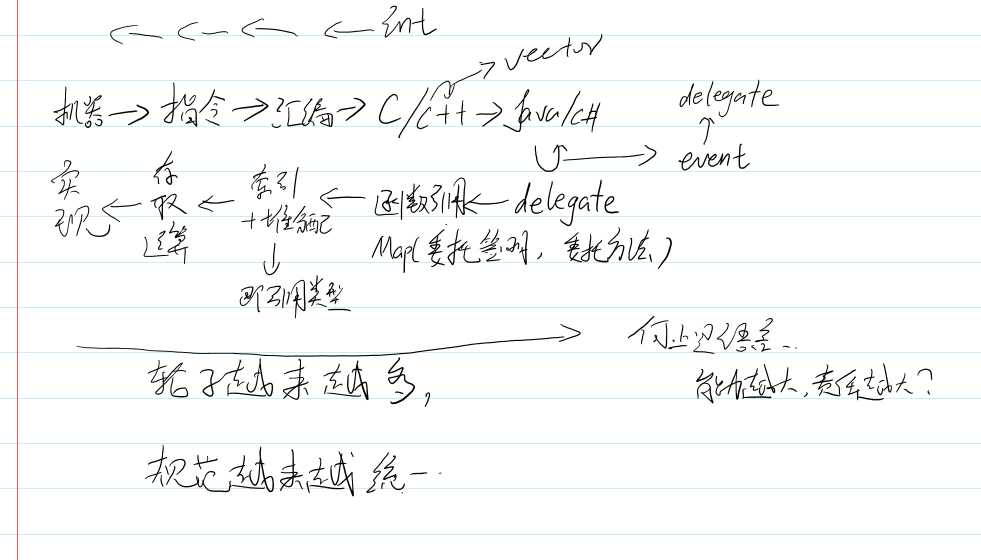 ← ← ← ← int
vector
机器→指令→汇编→C/C++→Java/C#
delegate
event
实现←存取运算←索引+堆分配←函数引用←delegate
Map(委托签名，委托方法)
即引用类型
轮子越来越多,
能力越大,责任越大?
规范越来越统一..